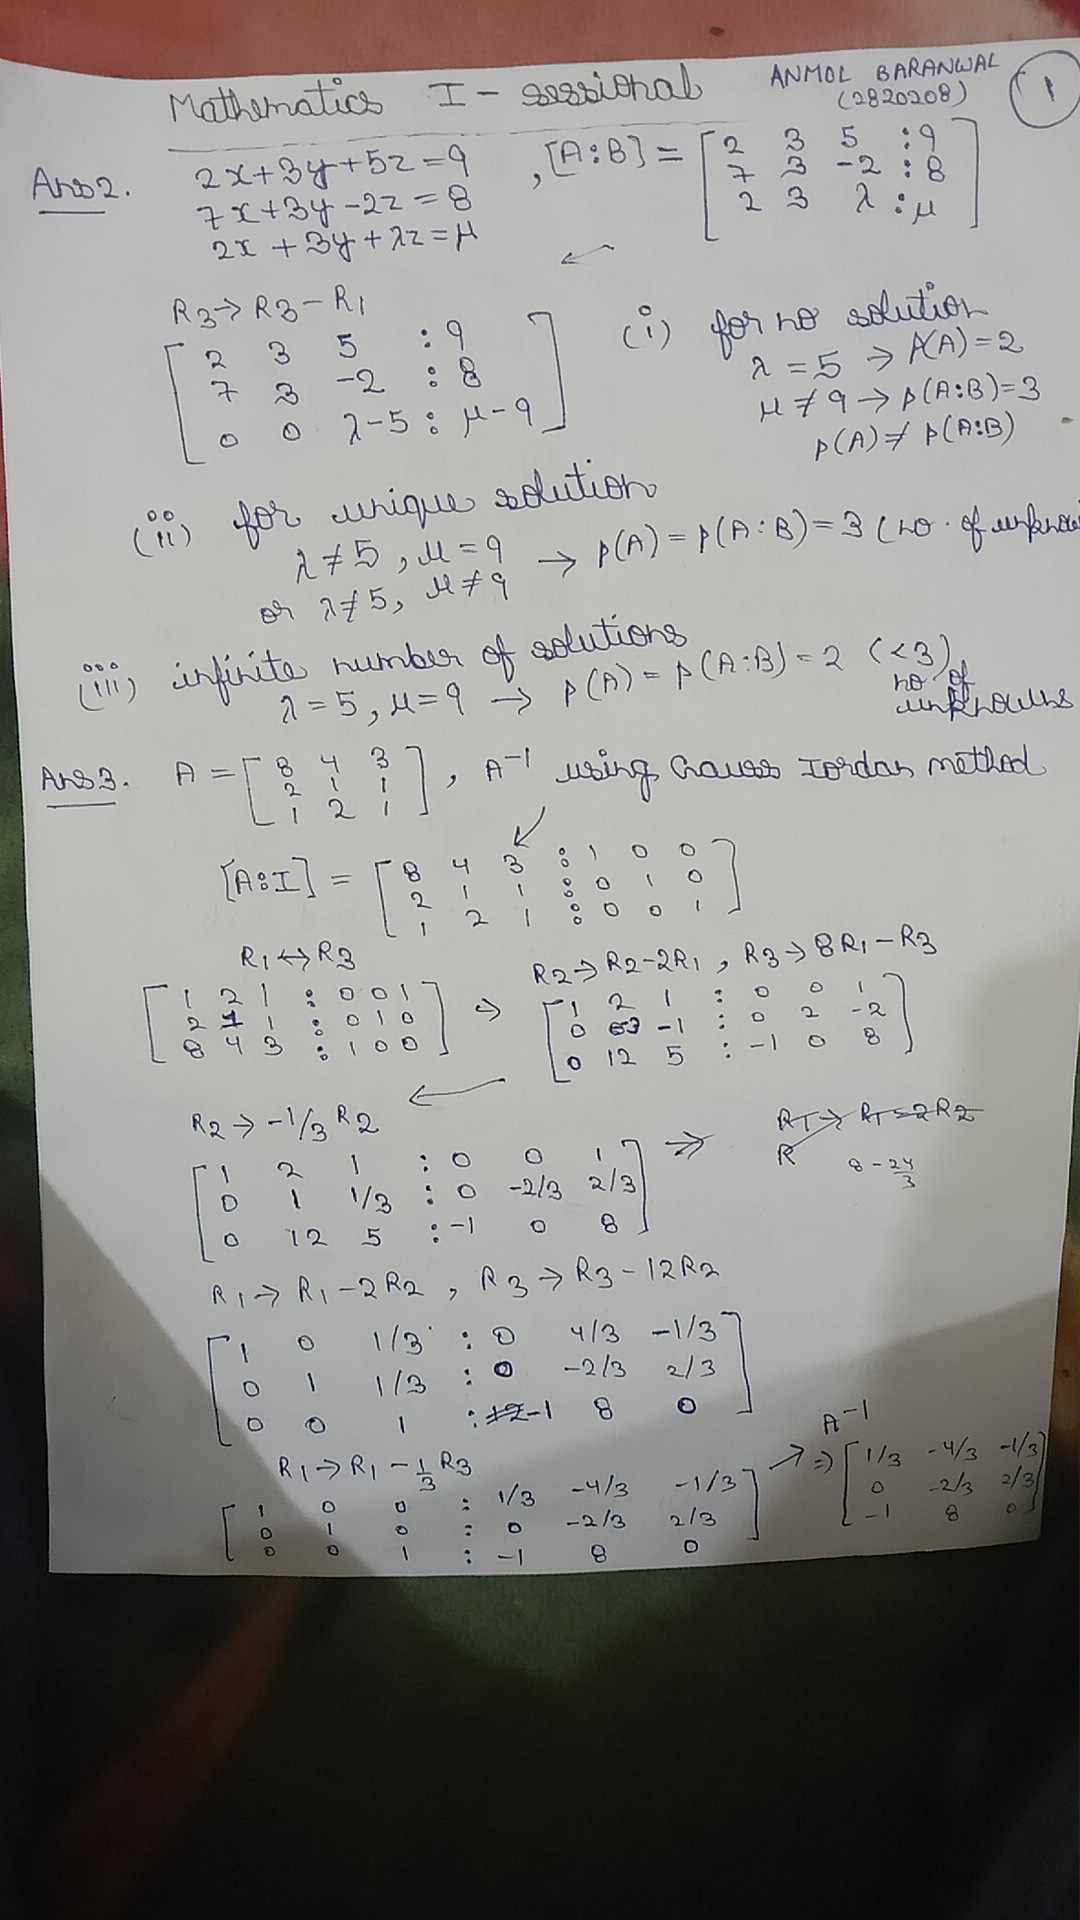 Mathematics I - sessional
ANMOL BARANWAL
(2820208)
1
Ans 2. 2x+3y+5z=9 , [A:B] = [2 3 5 :9
7x+3y-2z=8 7 3 -2 :8
2x+3y+λz=μ 2 3 λ :μ]
R3→R3-R1
[2 3 5 :9
7 3 -2 :8
0 0 λ-5 : μ-9]
(i) for no solution
λ=5 → ρ(A)=2
μ≠9 → ρ(A:B)=3
ρ(A)≠ρ(A:B)
(ii) for unique solution
λ≠5, μ=9 → ρ(A)=ρ(A:B)=3 (no. of
or λ≠5, μ≠9
(iii) infinite number of solutions
λ=5, μ=9 → ρ(A)=ρ(A:B)=2 (<3)
no of
unknowns
Ans 3. A = [8 4 3
2 1 1
1 2 1] , A⁻¹ using Gauss Jordan method
[A:I] = [8 4 3 : 1 0 0
2 1 1 : 0 1 0
1 2 1 : 0 0 1]
R1↔R3
[1 2 1 : 0 0 1
2 1 1 : 0 1 0
8 4 3 : 1 0 0] ⇒
R2→R2-2R1 , R3→8R1-R3
[1 2 1 : 0 0 1
0 3 -1 : 0 2 -2
0 12 5 : -1 0 8]
R2→-1/3 R2
[1 2 1 : 0 0 1
0 1 1/3 : 0 -2/3 2/3
0 12 5 : -1 0 8] ⇒
R1→R1-2R2
R
8-24/3
R1→R1-2R2 , R3→R3-12R2
[1 0 1/3 : 0 4/3 -1/3
0 1 1/3 : 0 -2/3 2/3
0 0 1 : -1 8 0]
R1→R1-1/3 R3
[1 0 0 : 1/3 -4/3 -1/3
0 1 0 : 0 -2/3 2/3
0 0 1 : -1 8 0]
A⁻¹
⇒ [1/3 -4/3 -1/3
0 -2/3 2/3
-1 8 0]